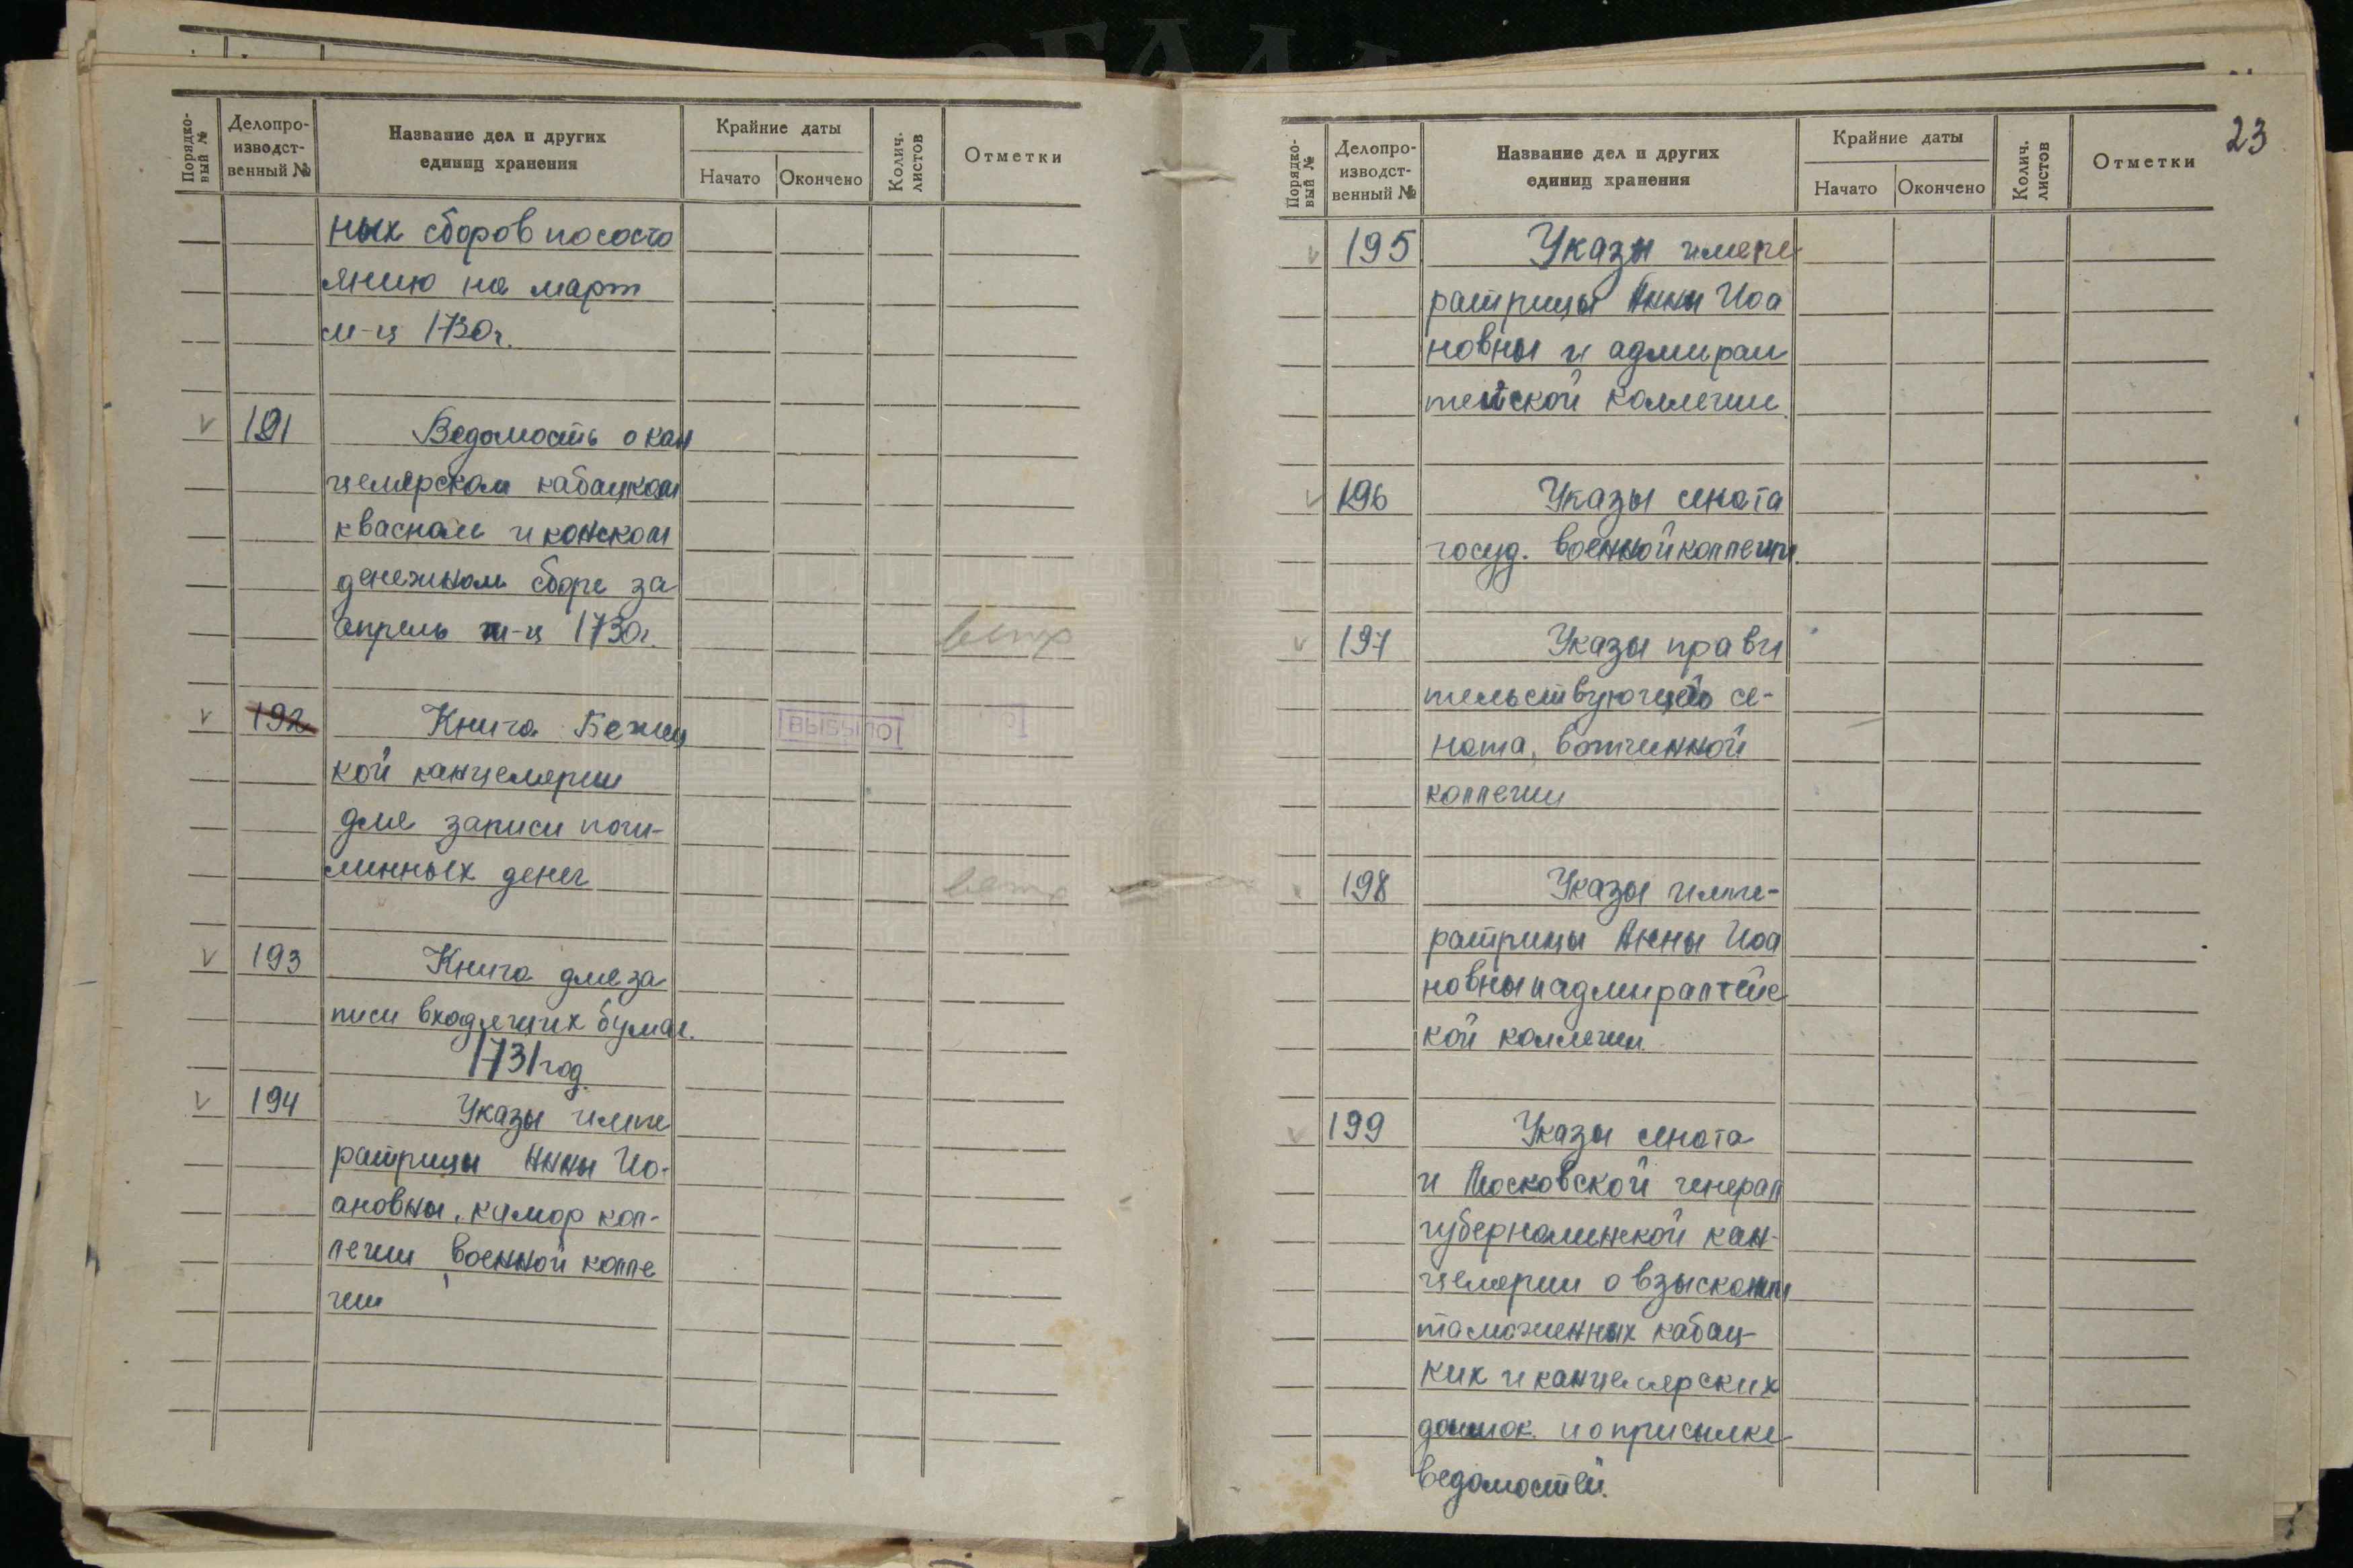 Порядко-
вый №
Делопро-
изводст-
венный №
Название дел и других
единиц хранения
Крайние даты
Начато
Окончено
Колич.
листов
Отметки
ных сборов по состо
янию на март
м-ц 1730г.
191 Ведомость о кан
целярском кабацком
квасном и конском
денежном сборе за
апрель м-ц 1730г.
192 Книга Бежец
ВЫБЫЛО
кой канцелярии
для записи
денег
193 Книга для за
писи входящих бумаг.
1731 год.
194 Указы импе
ратрицы Анны Ио-
ановны, камор кол-
легии, военной колле
гии
23
Порядко-
вый №
Делопро-
изводст-
венный №
Название дел и других
единиц хранения
Крайние даты
Начато
Окончено
Колич.
листов
Отметки
195 Указы импе
ратрицы Анны Иоа
новны и адмирал
тейской коллегии.
196 Указы сената
госуд. военной коллегии.
197 Указы прави
тельствующего се-
ната, вотчинной
коллегии
198 Указы импе-
ратрицы Анны Иоа
новны и адмиралтейс
кой коллегии.
199 Указы сената
и Московской генерал
губернаминской кан-
целярии о взыскании
таможенных кабац-
ких и канцелярских
и о присылке
ведомостей.